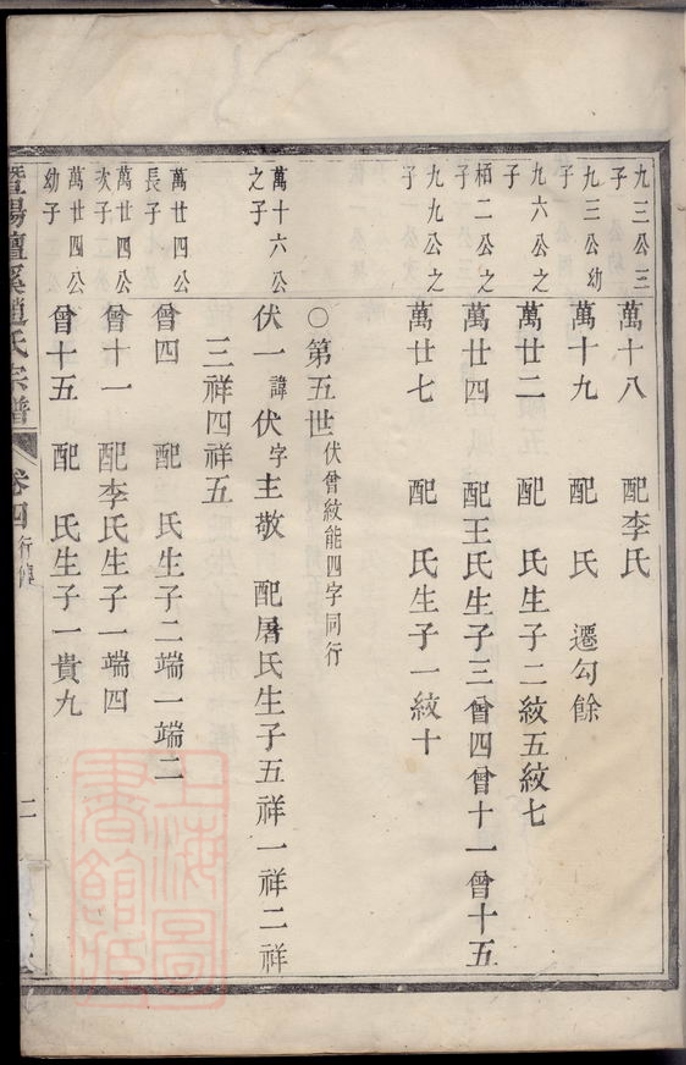 九三公三子 萬十八 配李氏
九三公幼子 萬十九 配 氏 遷勾餘
九六公之子 萬廿二 配 氏生子二紋五紋七
栢二公之子 萬廿四 配王氏生子三曾四曾十一曾十五
九九公之子 萬廿七 配 氏生子一紋十
○第五世伏曾紋能四字同行
萬十六公之子 伏一諱伏字主敬 配屠氏生子五祥一祥二祥
三祥四祥五
萬廿四公長子 曾四 配 氏生子二端一端二
萬廿四公次子 曾十一 配李氏生子一端四
萬廿四公幼子 曾十五 配 氏生子一貴九
暨陽壇溪趙氏宗譜 卷四 行傳 二
上海圖書館藏